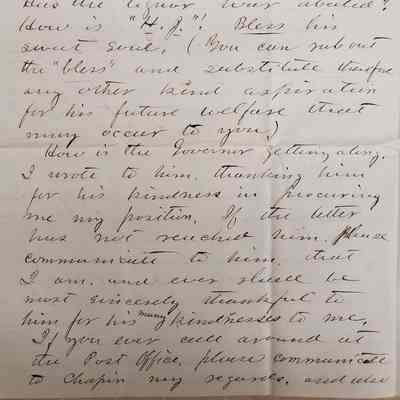 Has the liquor war abated?
How is "H. J."! Bless his
sweet soul. (You can rub out
the "bless" and substitute therefor
any other kind aspiration
for his future welfare that
may occur to you)
How is the Governor getting along.
I wrote to him, thanking him
for his kindness in procuring
me my position. If the letter
has not reached him, please
communicate to him, that
I am, and ever shall be
most sincerely thankful to
him for his many kindnesses to me.
If you ever call around at
the Post Office, please communicate
to Chapin my regards, and also